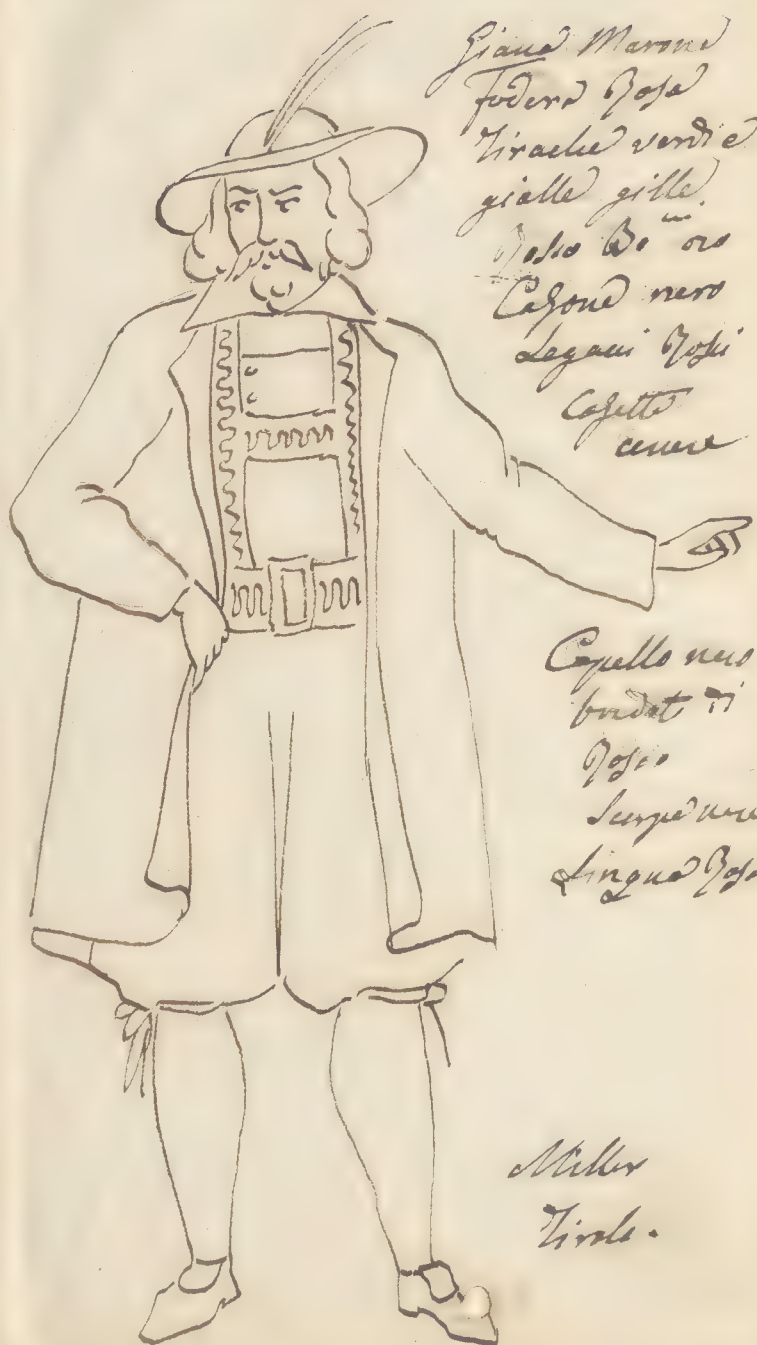 Giaca Marone
Fodera Rosa
Tirache verdi e
gialle gille
Rosso Bo oro
Calzone nero
Legacci Rossi
Calzette
cenere
Capello nero
bordat di
Rosso
Scarpe nere
Lingua Rosa
Miller
Tirolo.